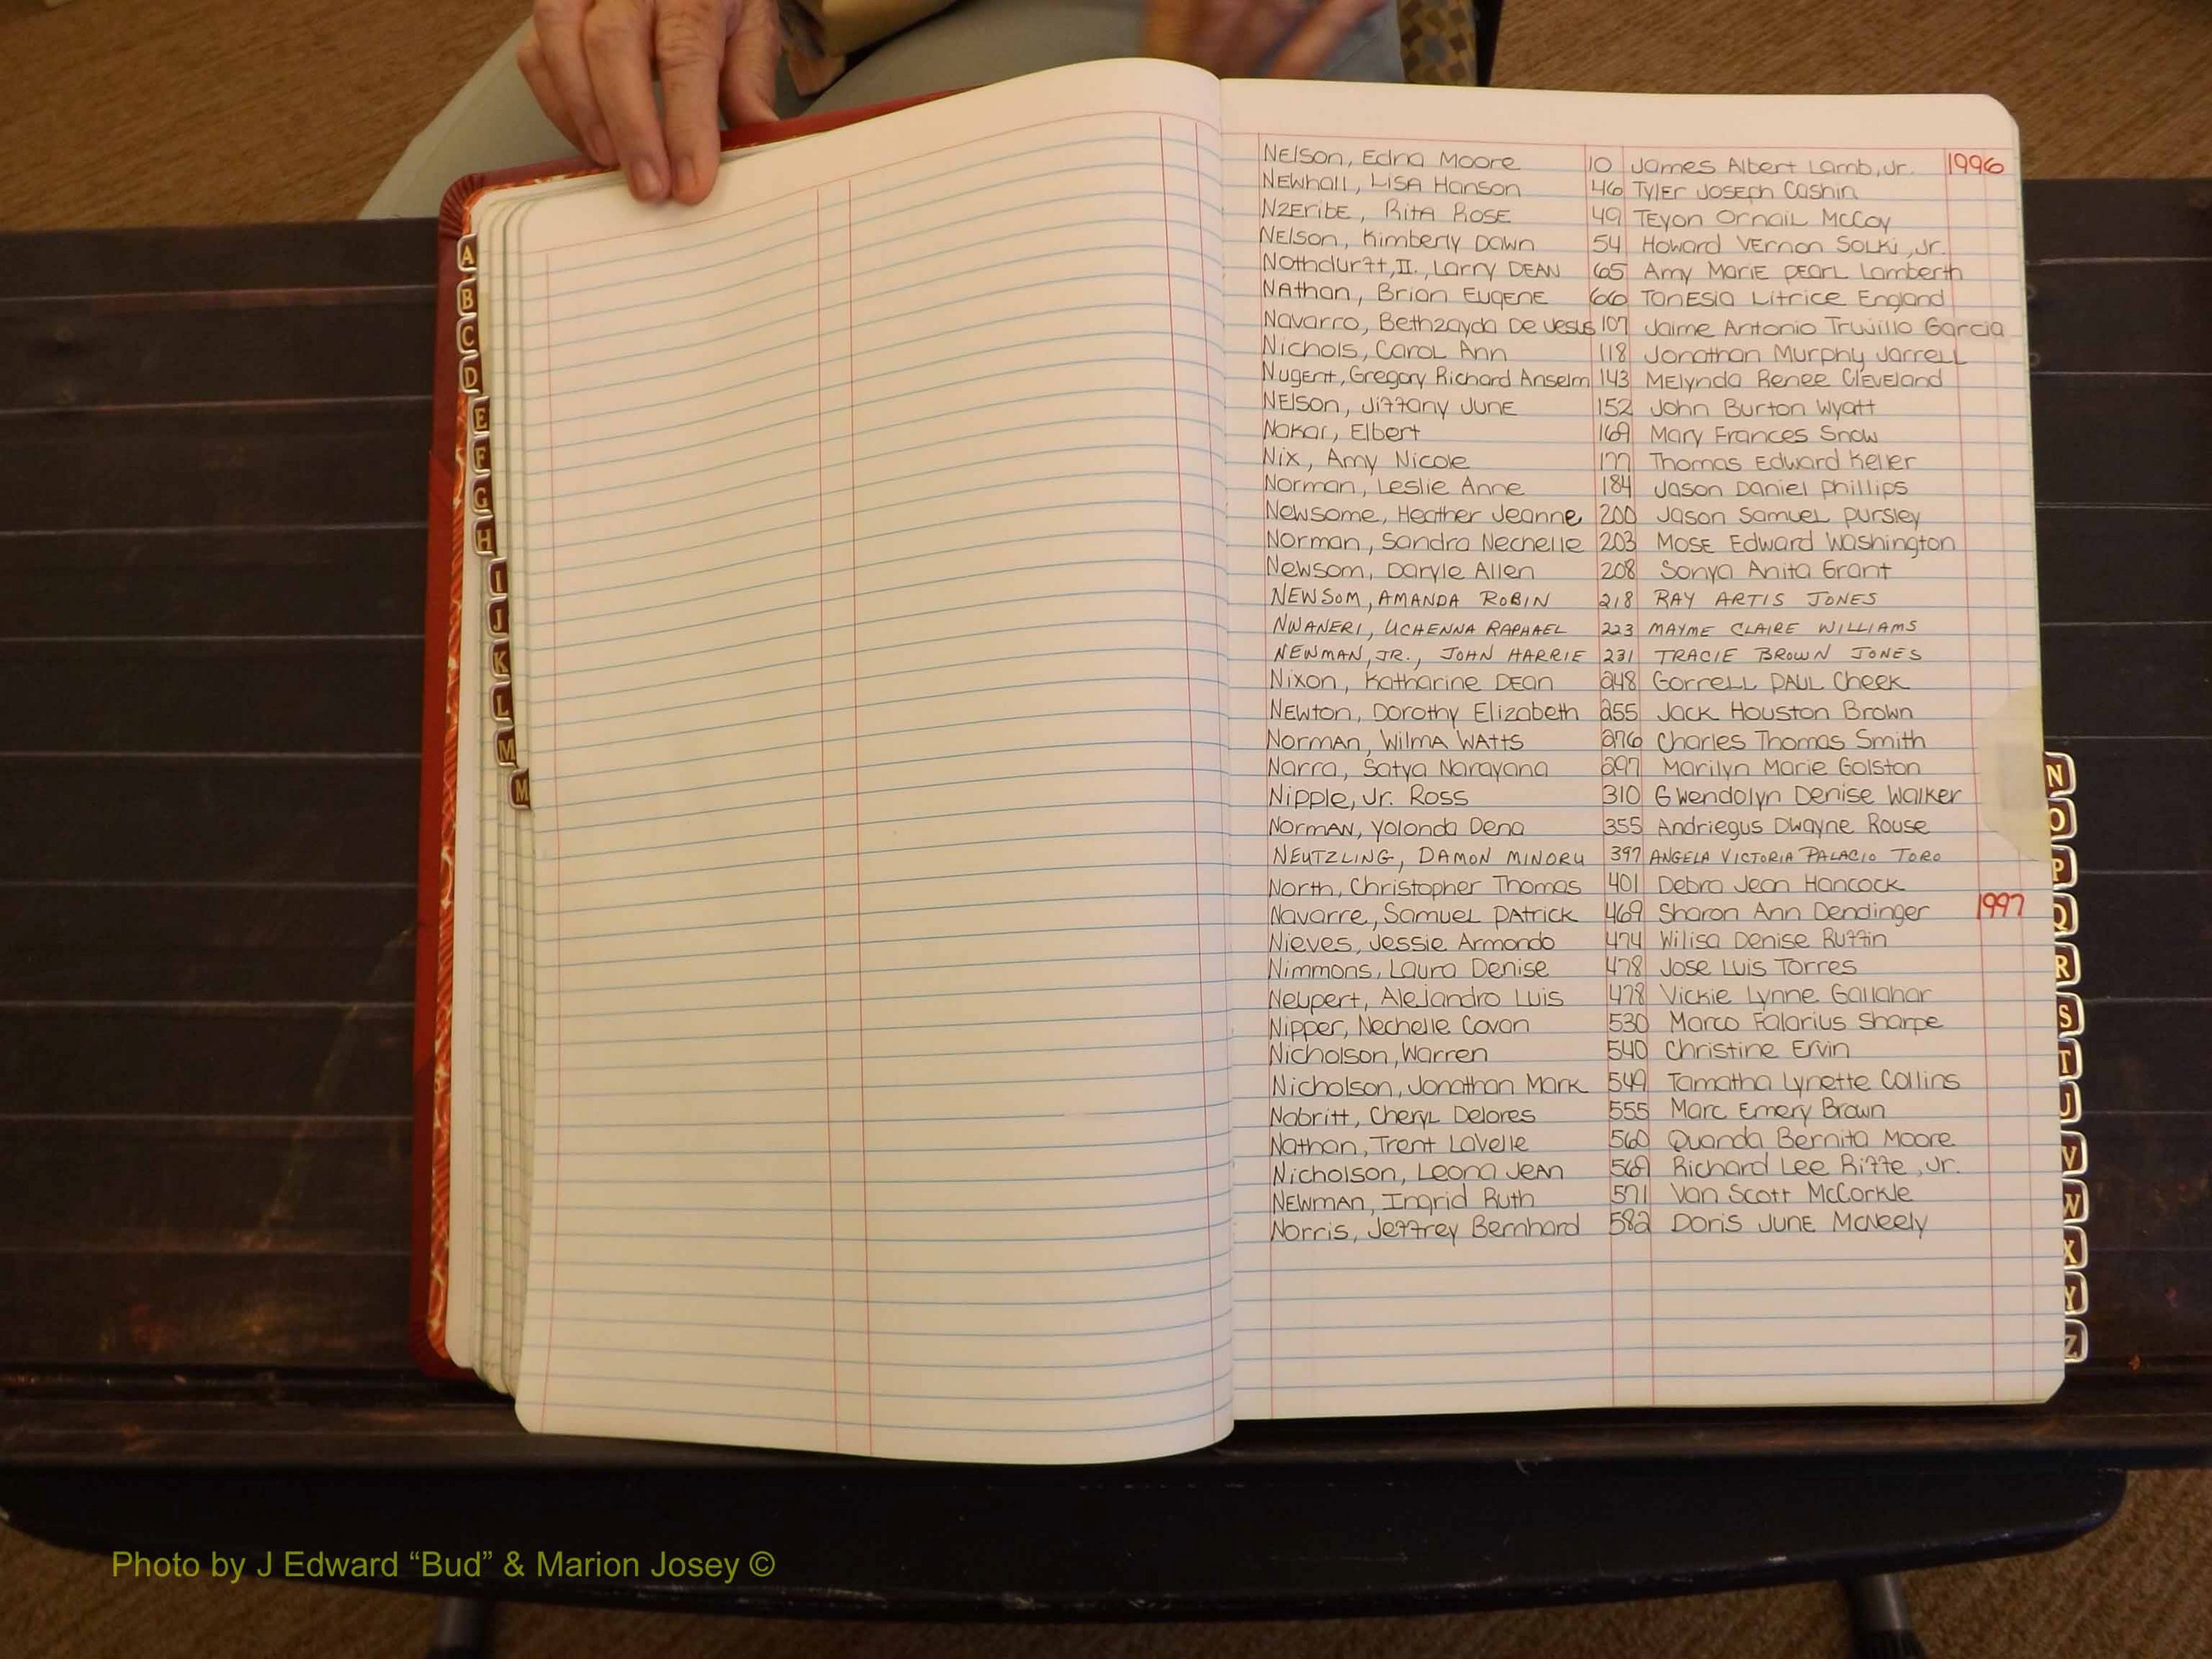 Nelson, Edna Moore 10 James Albert Lamb, Jr. 1996
Newhall, Lisa Hanson 46 Tyler Joseph Cashin
Nzeribe, Rita Rose 49 Teyon Ornail McCoy
Nelson, Kimberly Dawn 54 Howard Vernon Solki, Jr.
Nothdurft, II., Larry Dean 65 Amy Marie Pearl Lamberth
Nathan, Brian Eugene 66 Tanesia Litrice England
Navarro, Bethzayda De Jesus 107 Jaime Antonio Trujillo Garcia
Nichols, Carol Ann 118 Jonathan Murphy Jarrell
Nugent, Gregory Richard Anselm 143 Melynda Renee Cleveland
Nelson, Jiffany June 152 John Burton Wyatt
Nakai, Elbert 169 Mary Frances Snow
Nix, Amy Nicole 177 Thomas Edward Keller
Norman, Leslie Anne 184 Jason Daniel Phillips
Newsome, Heather Jeanne 200 Jason Samuel Pursley
Norman, Sandra Nechelle 203 Mose Edward Washington
Newsom, Daryle Allen 208 Sonya Anita Grant
NEWSOM, AMANDA ROBIN 218 RAY ARTIS JONES
NWANERI, UCHENNA RAPHAEL 223 MAYME CLAIRE WILLIAMS
NEWMAN, JR., JOHN HARRIE 231 TRACIE BROWN JONES
Nixon, Katharine Dean 248 Gorrell Paul Cheek
Newton, Dorothy Elizabeth 255 Jack Houston Brown
Norman, Wilma Watts 276 Charles Thomas Smith
Narra, Satya Narayana 297 Marilyn Marie Golston
Nipple, Jr. Ross 310 Gwendolyn Denise Walker
Norman, Yolonda Dena 355 Andriegus Dwayne Rouse
NEUTZLING, DAMON MINORU 397 ANGELA VICTORIA PALACIO TORO
North, Christopher Thomas 401 Debra Jean Hancock
Navarre, Samuel Patrick 469 Sharon Ann Dendinger 1997
Nieves, Jessie Armando 474 Wilisa Denise Ruffin
Nimmons, Laura Denise 478 Jose Luis Torres
Neupert, Alejandro Luis 478 Vickie Lynne Gallahar
Nipper, Nechelle Cavan 530 Marco Falarius Sharpe
Nicholson, Warren 540 Christine Ervin
Nicholson, Jonathan Mark 549 Tamatha Lynette Collins
Nabritt, Cheryl Delores 555 Marc Emery Brown
Nathan, Trent Lavelle 560 Quanda Bernita Moore
Nicholson, Leona Jean 569 Richard Lee Riffe, Jr.
Newman, Ingrid Ruth 571 Van Scott McCorkle
Norris, Jeffrey Bernhard 582 Doris June McNeely
A
B
C
D
E
F
G
H
I
J
K
L
M
M
N
O
P
Q
R
S
T
U
V
W
X
Y
Z
Photo by J Edward “Bud” & Marion Josey ©